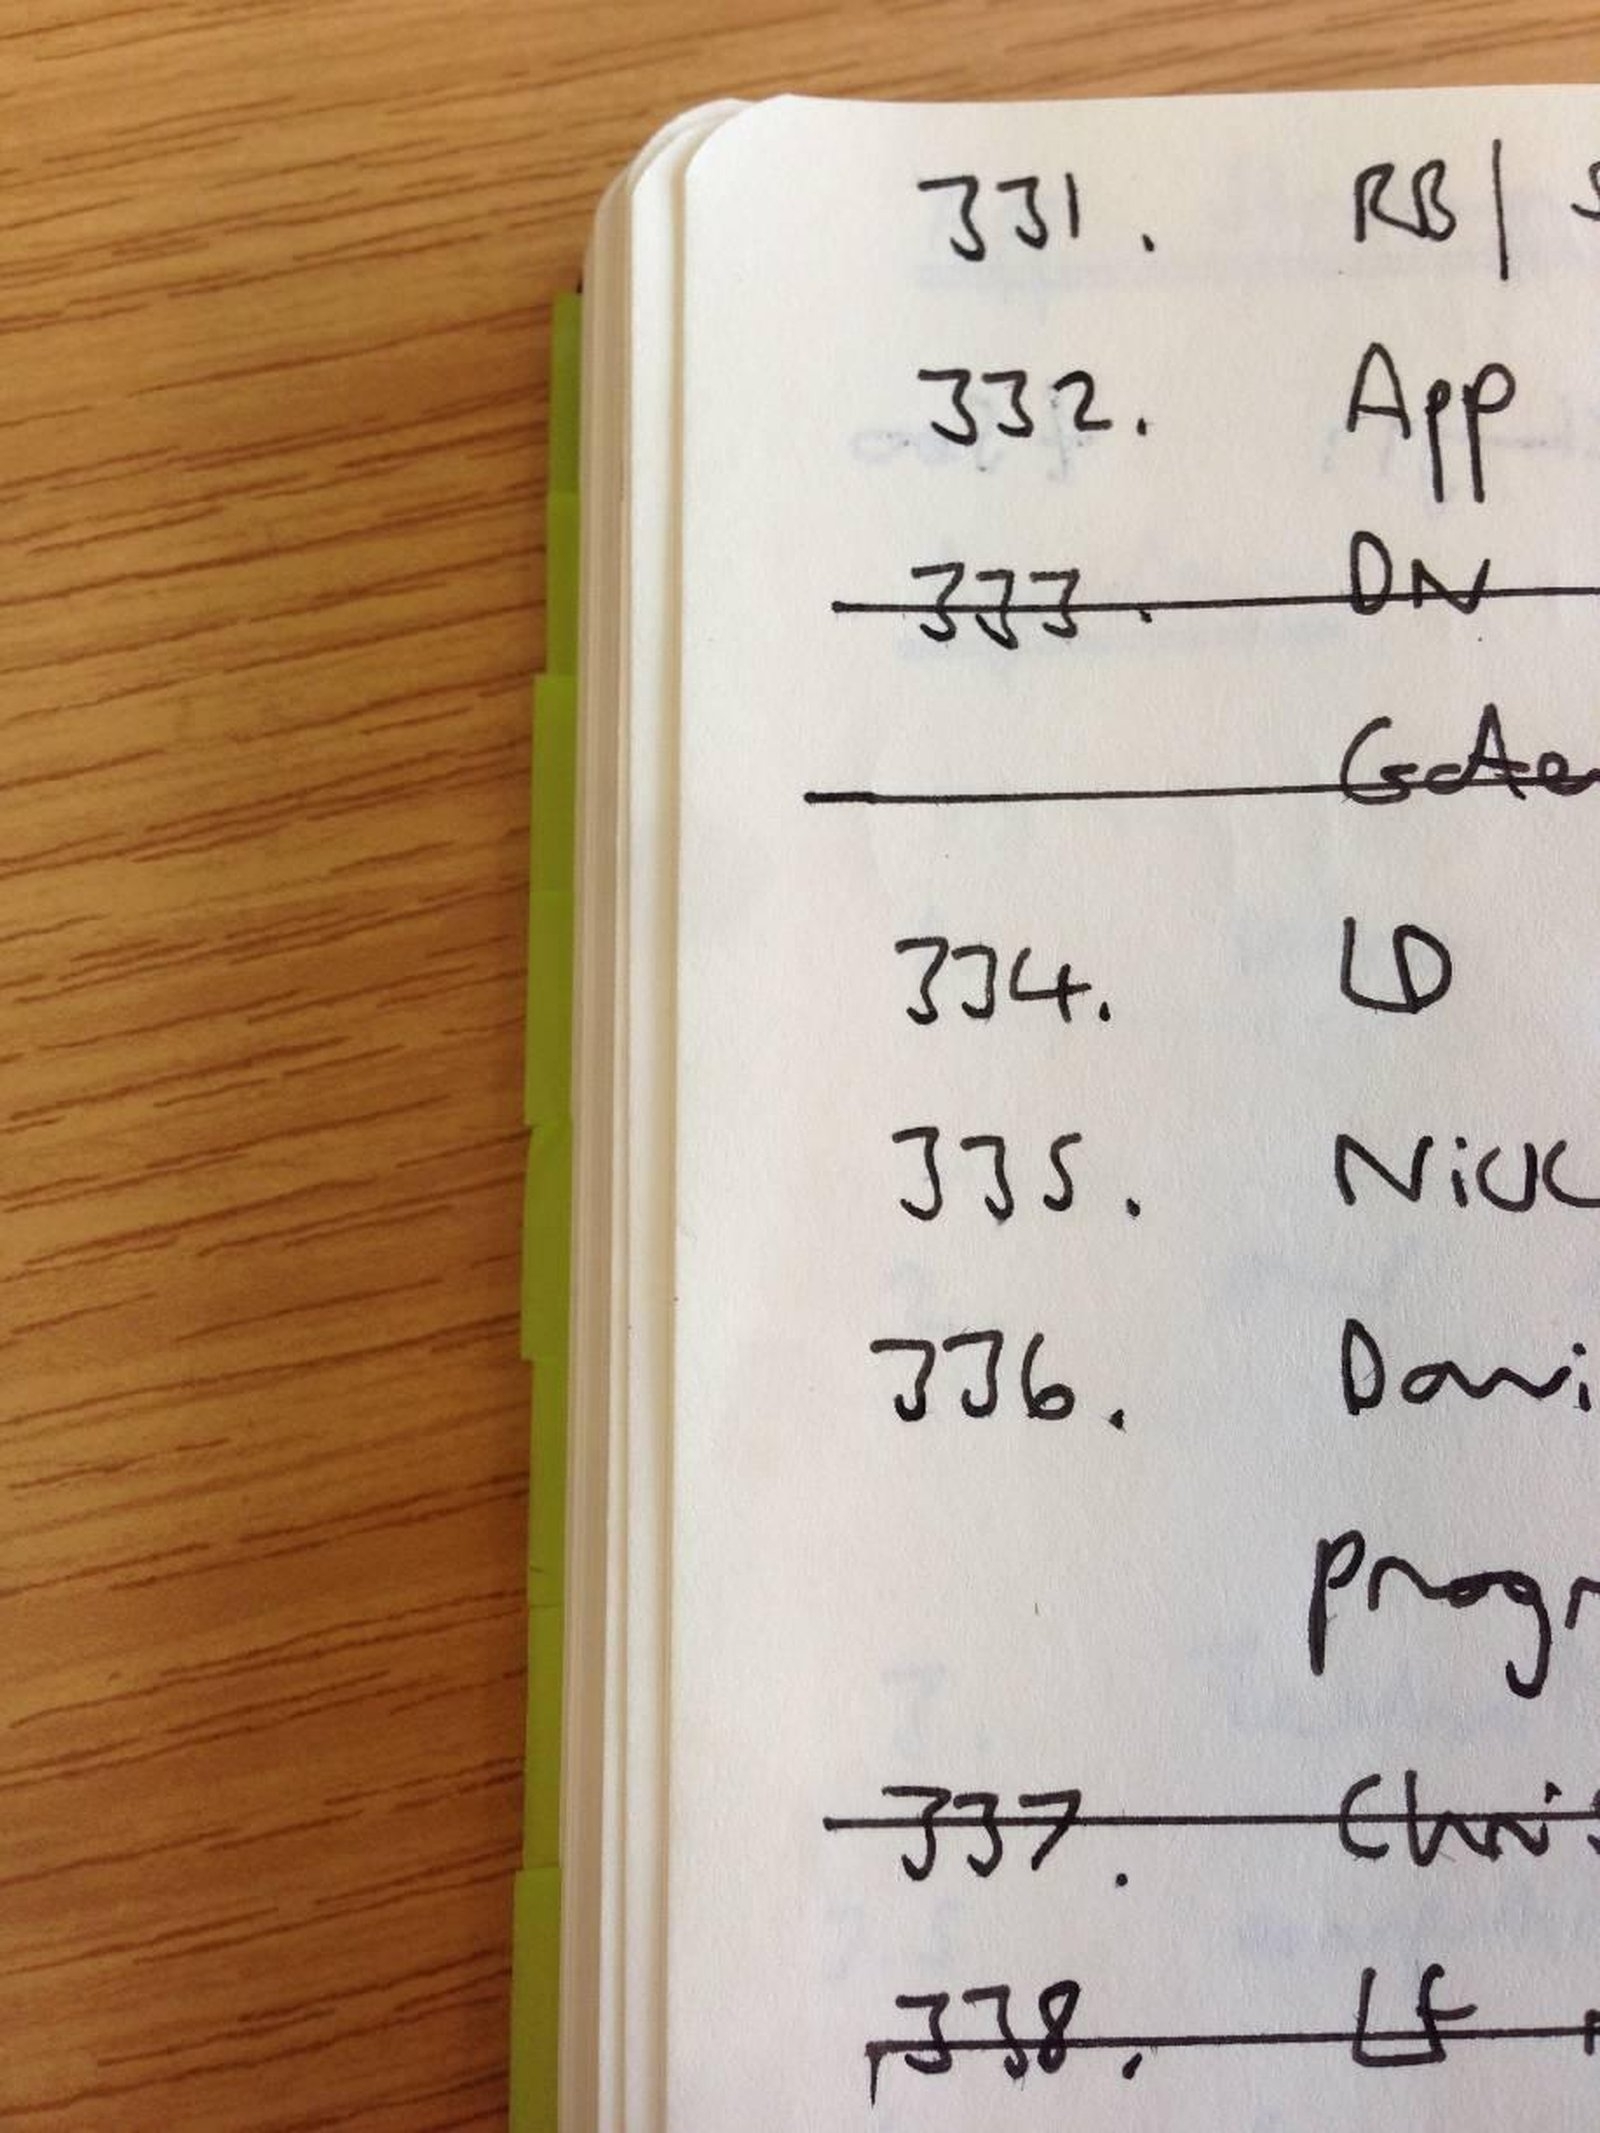 331. RB| S
332. App
333. DN
334. LD
335. Nick
336. Davi
progr
337. Chris
338. LF